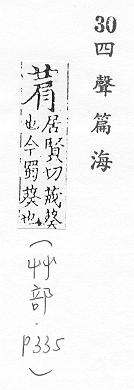 30 四聲篇海
菺 居賢切茙葵
也今蜀葵也
(艸部.P335)